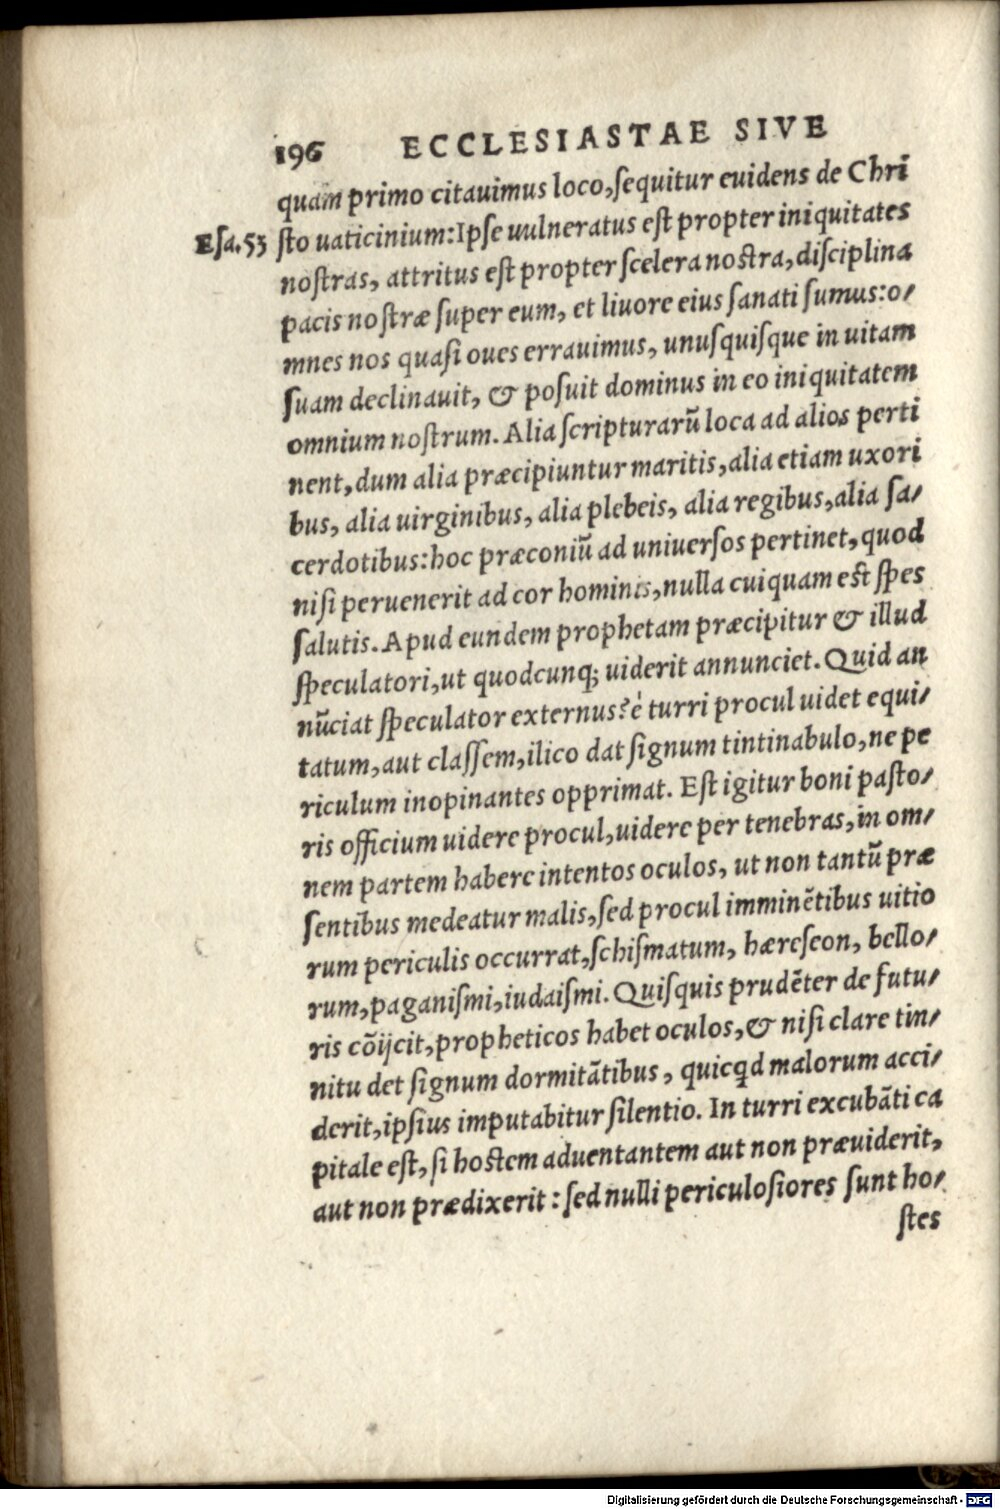 196 ECCLESIASTAE SIVE
quam primo citauimus loco, sequitur euidens de Chri
Esa. 53 sto uaticinium: Ipse uulneratus est propter iniquitates
nostras, attritus est propter scelera nostra, disciplina
pacis nostræ super eum, et liuore eius sanati sumus: o/
mnes nos quasi oues errauimus, unusquisque in uitam
suam declinauit, & posuit dominus in eo iniquitatem
omnium nostrum. Alia scripturarũ loca ad alios perti
nent, dum alia præcipiuntur maritis, alia etiam uxori
bus, alia uirginibus, alia plebeis, alia regibus, alia sa/
cerdotibus: hoc præconiũ ad uniuersos pertinet, quod
nisi peruenerit ad cor hominis, nulla cuiquam est spes
salutis. Apud eundem prophetam præcipitur & illud
speculatori, ut quodcunq; uiderit annunciet. Quid an
nũciat speculator externus? è turri procul uidet equi/
tatum, aut classem, ilico dat signum tintinabulo, ne pe
riculum inopinantes opprimat. Est igitur boni pasto/
ris officium uidere procul, uidere per tenebras, in om/
nem partem habere intentos oculos, ut non tantũ præ
sentibus medeatur malis, sed procul imminẽtibus uitio
rum periculis occurrat, schismatum, hæreseon, bello/
rum, paganismi, iudaismi. Quisquis prudẽter de futu/
ris cõijcit, propheticos habet oculos, & nisi clare tin/
nitu det signum dormitãtibus, quicqd malorum acci/
derit, ipsius imputabitur silentio. In turri excubãti ca
pitale est, si hostem aduentantem aut non præuiderit,
aut non prædixerit: sed nulli periculosiores sunt ho/
stes
Digitalisierung gefördert durch die Deutsche Forschungsgemeinschaft - DFG